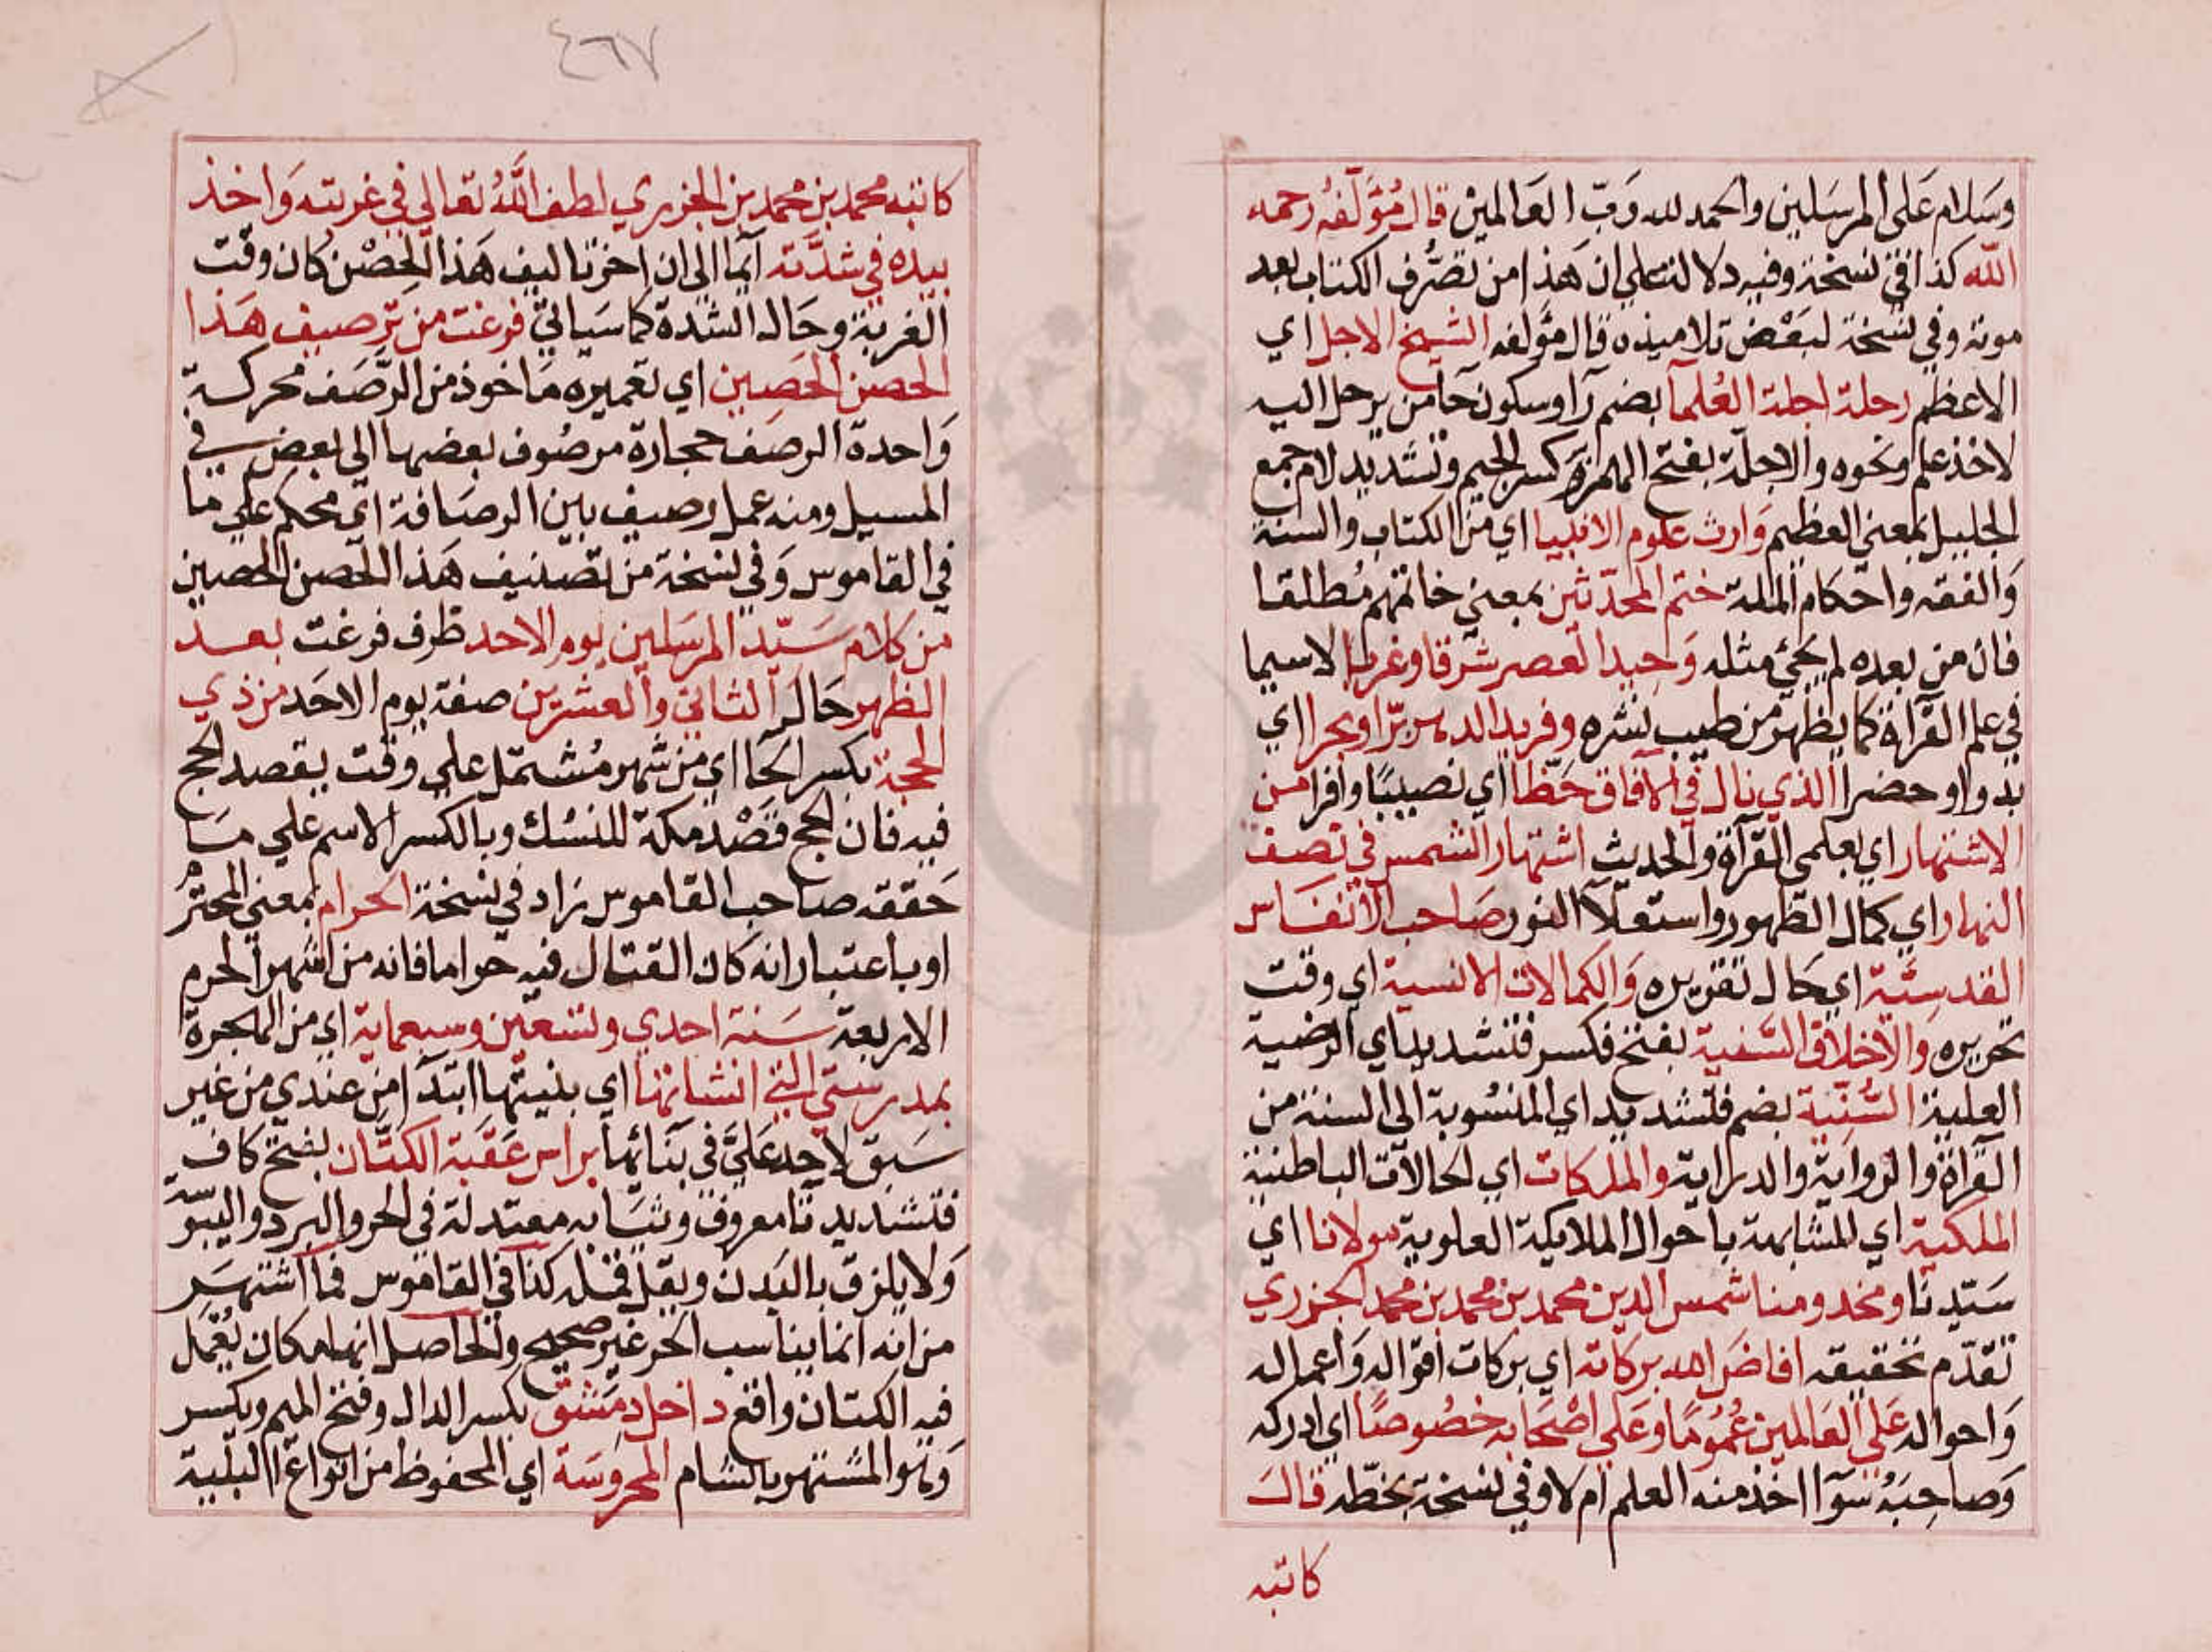 وسلام على المرسلين والحمد لله رب العالمين قال مؤلفه رحمه
الله كذا في نسخة وفيه دلالة على ان هذا من تصرف الكتاب بعد
موته وفي نسخة لبعض تلاميذه قال مؤلفه الشيخ الاجل اي
الاعظم رحلة اجلة العلمآ بضم رآ وسكون حآ من يرحل اليه
لاخذ علم ونحوه والاجلة بفتح الهمزة وكسر الجيم وتشديد لام جمع
الجليل بمعني العظيم وارث علوم الانبيا اي من الكتاب والسنة
والفقه واحكام الملة ختم المحدثين بمعني خاتمهم مطلقا
فان من بعده لم يجئ مثله وحيد العصر شرقا وغربا لاسيما
في علم القرآة كما يظهر من طيب نشره وفريد الدهر برا وبحرا اي
بدوا وحضرا الذي نال في الآفاق حظا اي نصيبا وافرا من
الاشتهار اي بعلمي القرآة والحديث اشتهار الشمس في نصف
النهار اي كمال الظهور واستعلآ النور صاحب الانفاس
القدسية اي حال تقريره والكمالات الانسية اي وقت
تحريره والاخلاق السنية بفتح فكسر فتشديد اي الرضية
العلية السنية بضم فتشديد اي المنسوبة الى السنة من
القرآة والرواية والدراية والملكات اي الحالات الباطنية
الملكية اي المشابهة باحوال الملايكة العلوية مولانا اي
سيدنا ومخدومنا شمس الدين محمد بن محمد بن محمد الجزري
تقدم تحقيقه افاض الله بركاته اي بركات اقواله واعماله
واحواله على العالمين عموما وعلي اصحابه خصوصا اي ادركه
وصاحبه سوآ اخذ منه العلم ام لا وفي نسخة بخطه قال
كاتبه
٤٦٧
كاتبه محمد بن محمد بن الجزري لطف الله تعالي في غربته واخذ
بيده في شدته ايما الى ان اخر تاليف هذا الحصن كان وقت
الغربة وحال الشدة كما سياتي فرغت من ترصيف هذا
الحصن الحصين اي تعميره ماخوذ من الرصف محركة
واحدة الرصف حجارة مرصوف بعضها الى بعض في
المسيل ومنه عمل رصيف بين الرصافة اي محكم علي ما
في القاموس وفي نسخة من تصنيف هذا الحصن الحصين
من كلام سيد المرسلين يوم الاحد ظرف فرغت بعد
الظهر حال الثاني والعشرين صفة يوم الاحد من ذي
الحجة بكسر الحآ اي من شهر مشتمل علي وقت يقصد الحج
فيه فان الحج قصد مكة للنسك وبالكسر الاسم علي ما
حققه صاحب القاموس زاد في نسخة الحرام بمعني المحترم
او باعتبار انه كان القتال فيه حراما فانه من اشهر الحرم
الاربعة سنة احدي وتسعين وسبعماية اي من الهجرة
بمدرستي التي انشاتها اي بنيتها ابتدآ من عندي من غير
سبق لاحد علي في بنائها براس عقبة الكتان بفتح كاف
فتشديد تا معروف وثيابه معتدلة في الحر والبرد واليبوسة
ولا يلزق بالبدن ويقل قمله كذا في القاموس فما اشتهر
من انه انما يناسب الحر غير صحيح والحاصل انها مكان يعمل
فيه الكتان واقع داخل دمشق بكسر الدال وفتح الميم ويكسر
وهو المشتهر بالشام المحروسة اي المحفوظ من انواع البلية